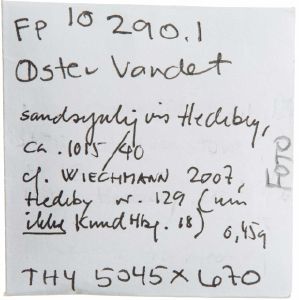 FP 10 290.1
Øster Vandet
sandsynligvis Hedeby,
ca. 1015/40
cf. WIECHMANN 2007,
Hedeby nr. 129 (men
ikke Knud Hbg. 18) 0,45g
THY 5045 x 670
FOTO